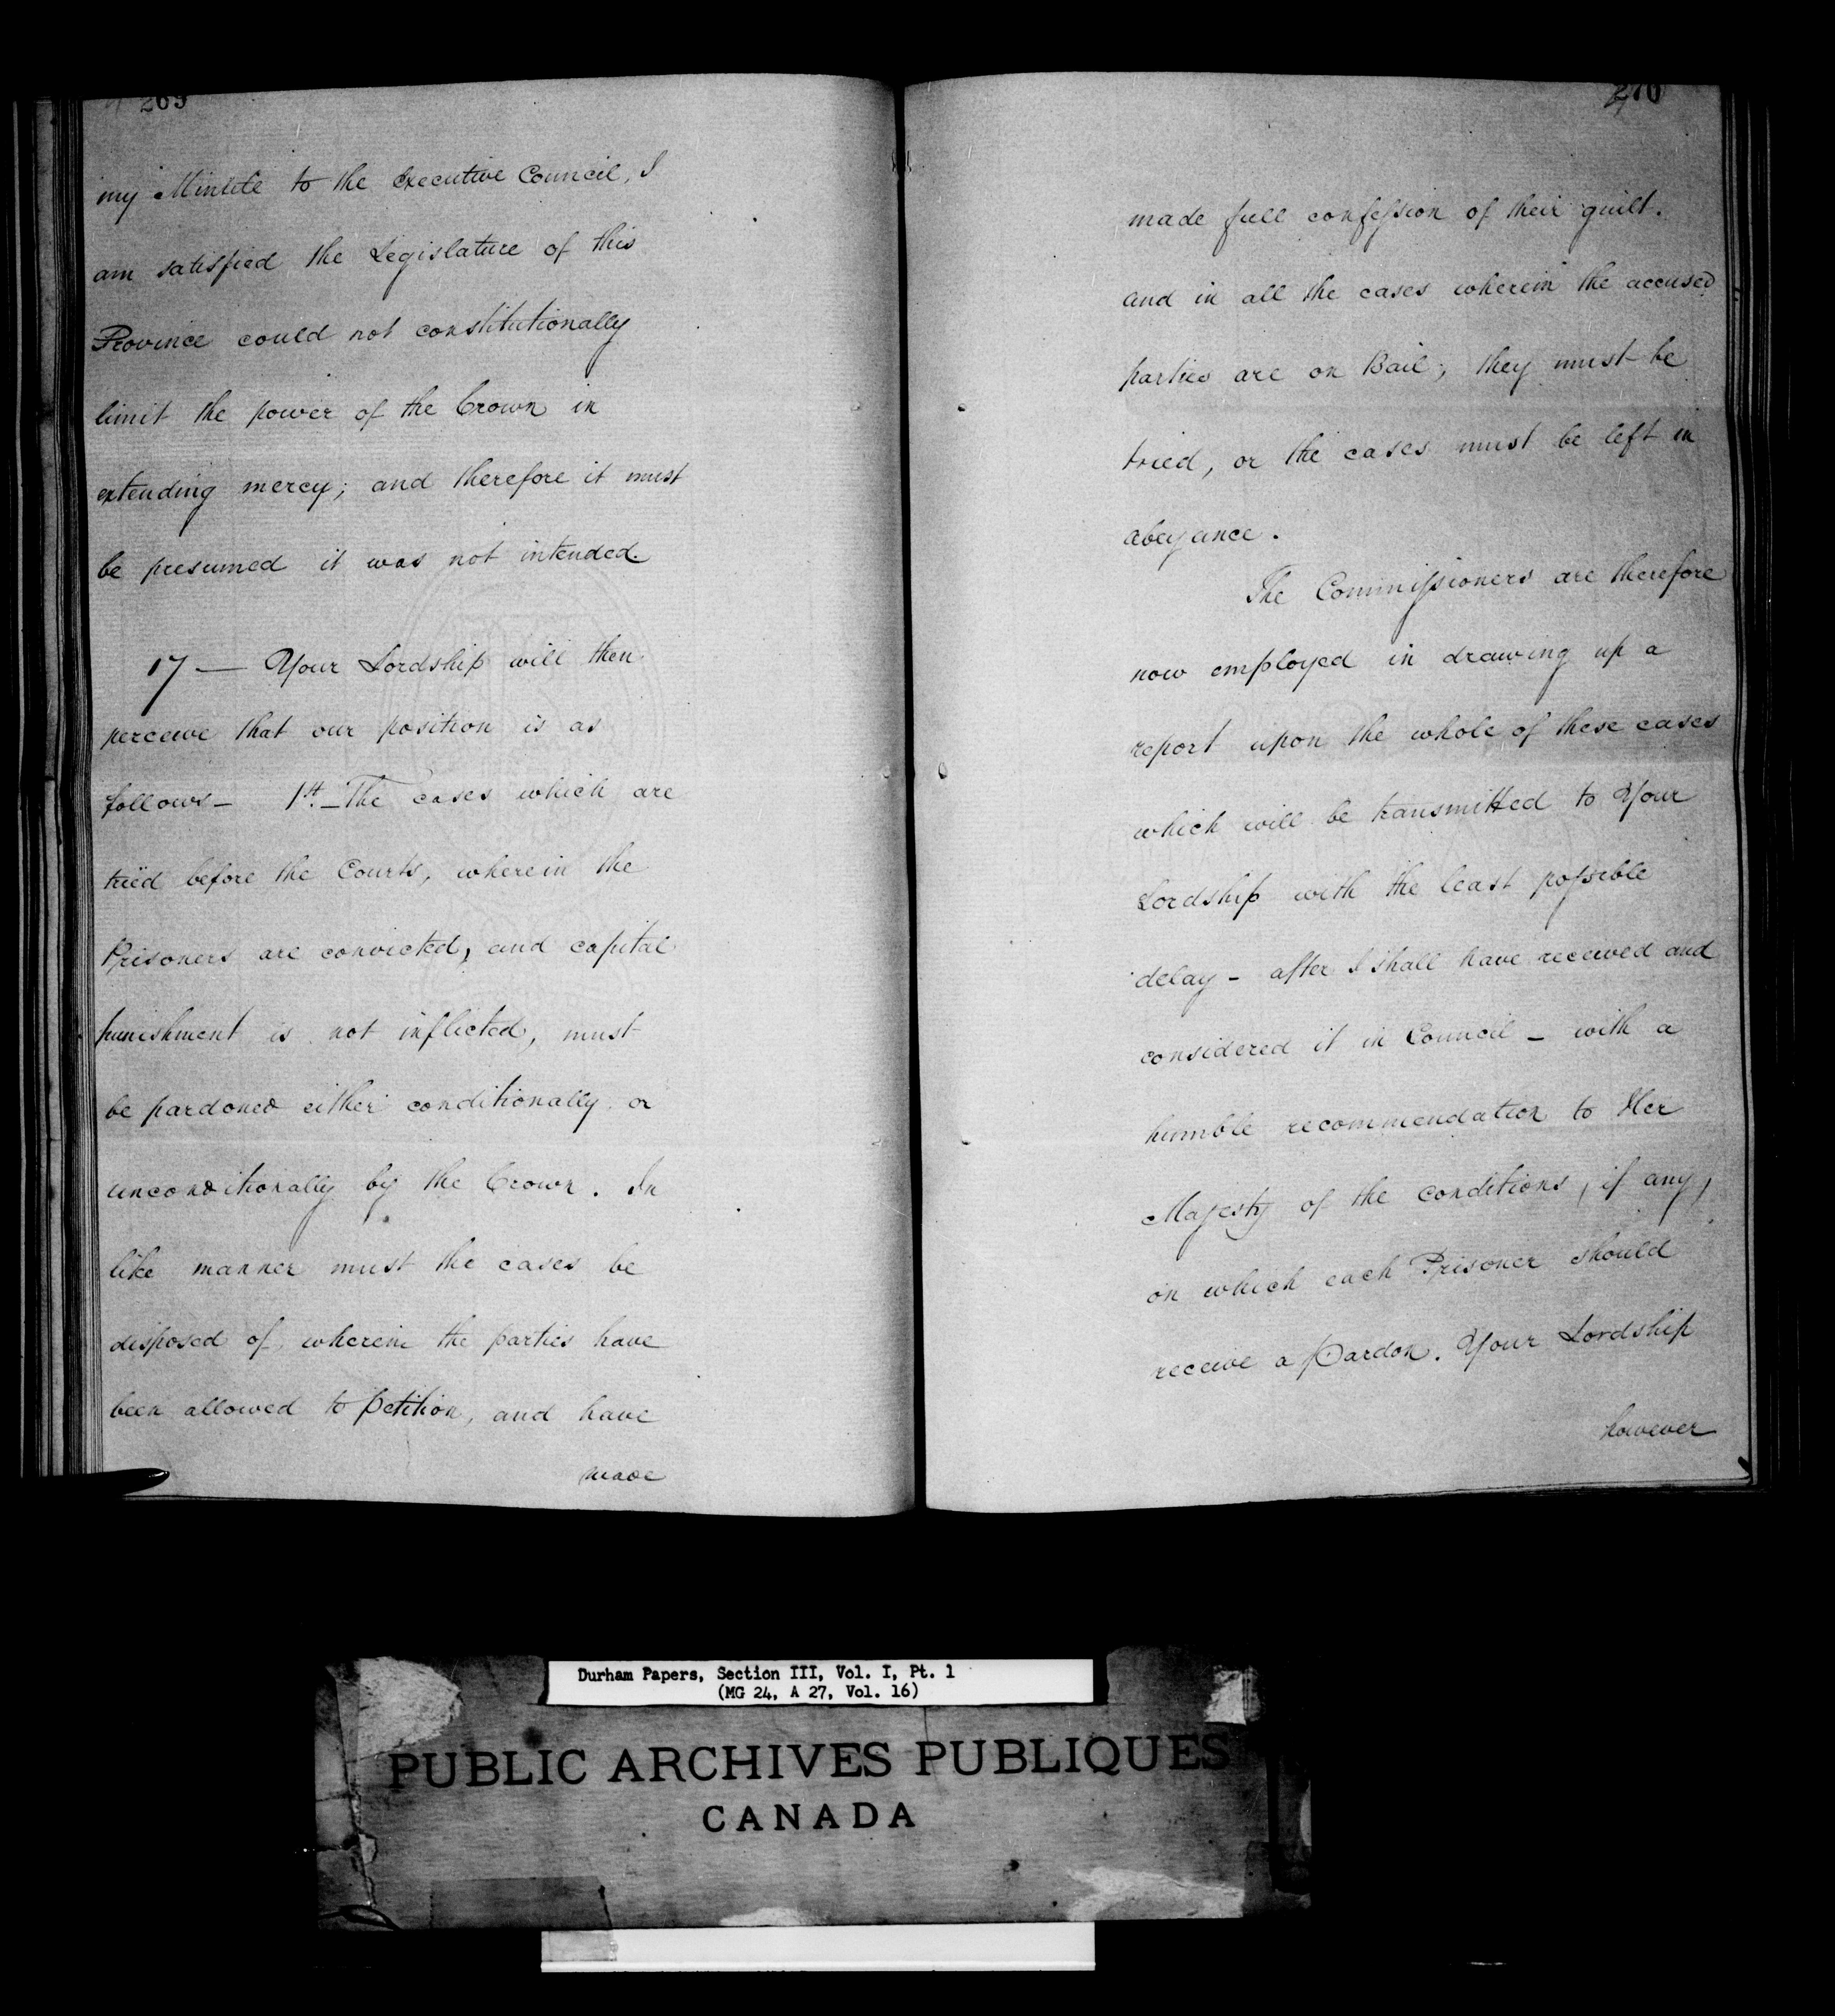 269
my Minute to the Executive Council, I
am satisfied the Legislature of this
Province could not constitutionally
limit the power of the Crown in
extending mercy; and therefore it must
be presumed it was not intended.
17 — Your Lordship will then
perceive that our position is as
follows — 1st. — The cases which are
tried before the Courts, wherein the
Prisoners are convicted, and capital
punishment is not inflicted, must
be pardoned either conditionally or
unconditionally by the Crown. In
like manner must the cases be
disposed of, wherein the parties have
been allowed to petition, and have
made
270
made full confession of their guilt.
and in all the cases wherein the accused
parties are on Bail; they must be
tried, or the cases must be left in
abeyance.
The Commissioners are therefore
now employed in drawing up a
report upon the whole of these cases
which will be transmitted to Your
Lordship with the least possible
delay — after I shall have received and
considered it in Council — with a
humble recommendation to Her
Majesty of the conditions, if any,
on which each Prisoner should
receive a pardon. Your Lordship
however
Durham Papers, Section III, Vol. I, Pt. 1
(MG 24, A 27, Vol. 16)
PUBLIC ARCHIVES PUBLIQUES
CANADA